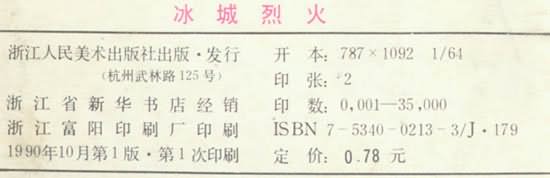 冰城烈火
浙江人民美术出版社出版·发行
(杭州武林路125号)
浙江省新华书店经销
浙江富阳印刷厂印刷
1990年10月第1版·第1次印刷
开 本: 787×1092 1/64
印 张: 2
印 数: 0,001—35,000
ISBN 7-5340-0213-3/J·179
定 价: 0.78 元